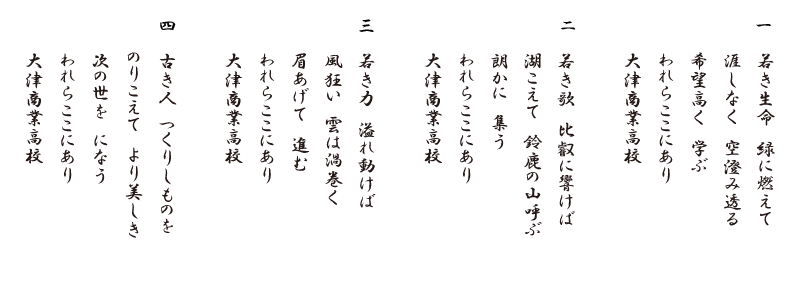 一
若き生命　緑に燃えて
涯しなく　空澄み透る
希望高く　学ぶ
われらここにあり
大津商業高校
二
若き歌　比叡に響けば
湖こえて　鈴鹿の山呼ぶ
朗かに　集う
われらここにあり
大津商業高校
三
若き力　溢れ動けば
風狂い　雲は渦巻く
眉あげて　進む
われらここにあり
大津商業高校
四
古き人　つくりしものを
のりこえて　より美しき
次の世を　になう
われらここにあり
大津商業高校